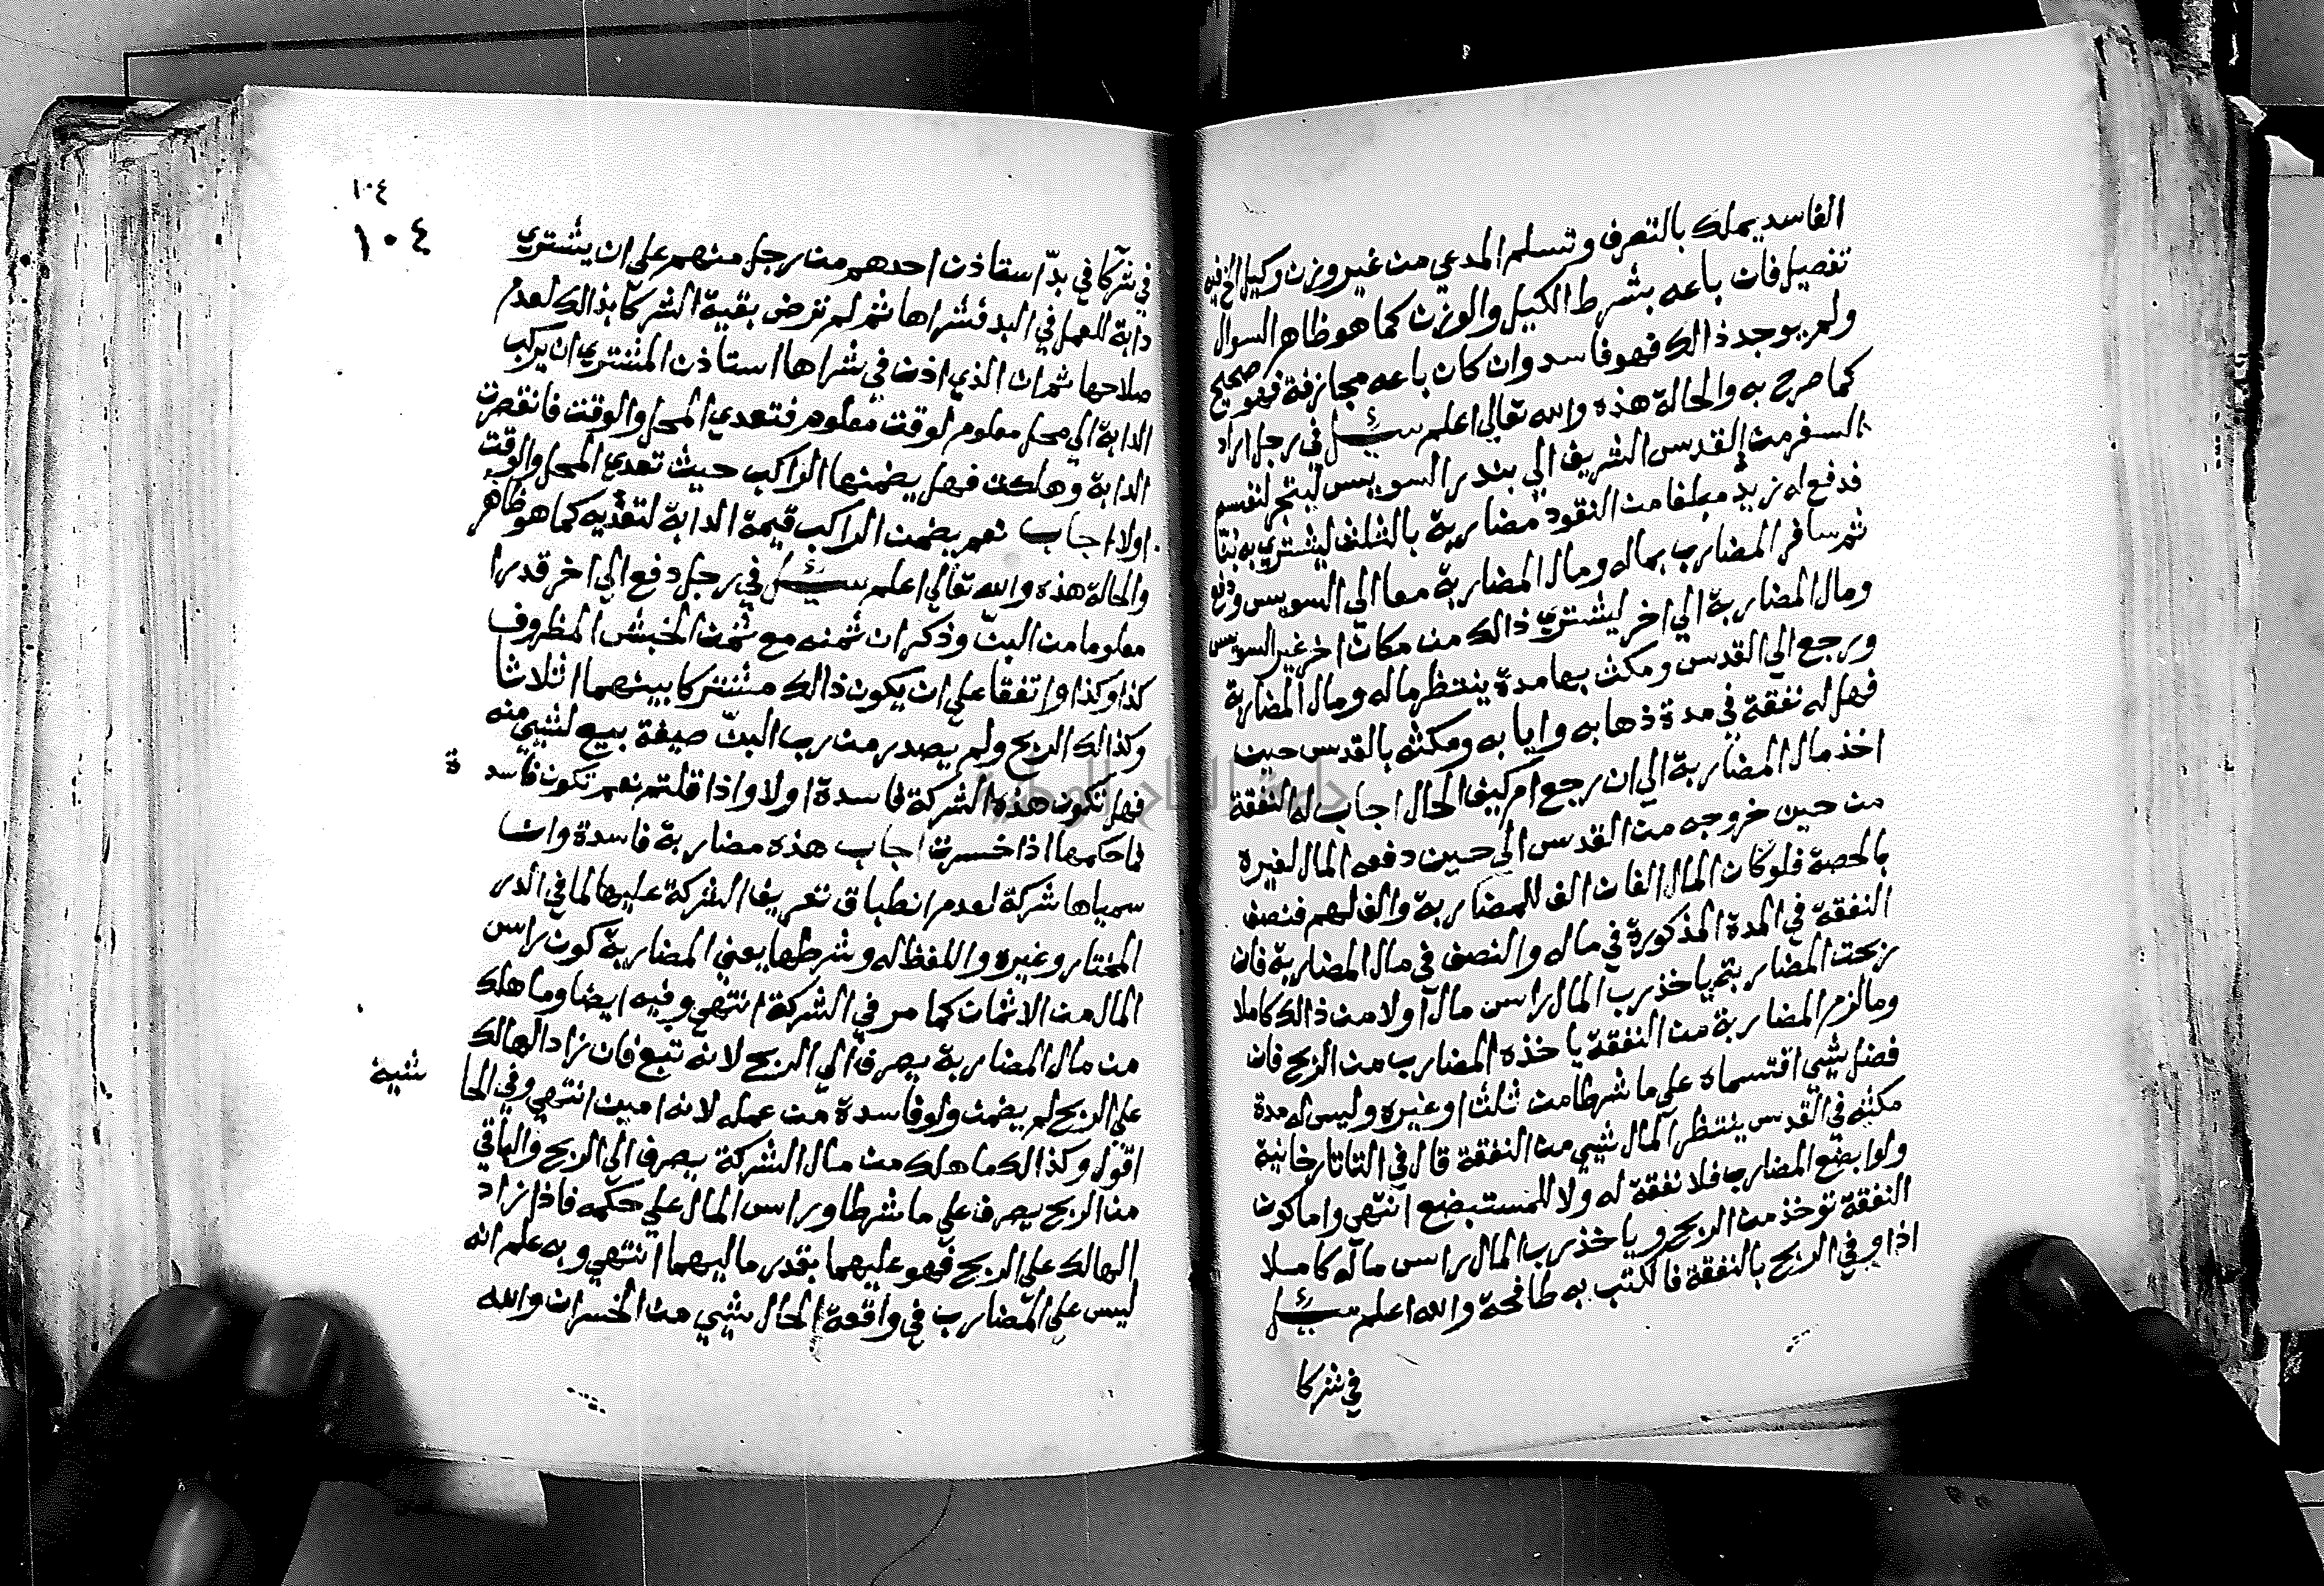 الفاسد يملك بالتصرف وتسلم المدعي من غير وزن وكيل الخ فيه
تفصيل فان باعه بشرط الكيل والوزن كما هو ظاهر السوال
ولم يوجد ذالك فهو فاسد وان كان باعه مجازفة فهو صحيح
كما صرح به والحالة هذه والله تعالي اعلم سئل في رجل اراد
السفر من القدس الشريف الي بندر السويس ليتجر لنفسه
فدفع له زيد مبلغا من النقود مضاربة بالثلث ليشتري به بنا
ثم سافر المضارب بماله ومال المضاربة معا الي السويس ودفع
ومال المضاربة الي اخر ليشتري ذالك من مكان اخر غير السويس
ورجع الي القدس ومكث بها مدة ينتظر ماله ومال المضاربة
فهل له نفقة في مدة ذهابه وايابه ومكثه بالقدس حين
اخذ مال المضاربة الي ان رجع ام كيف الحال اجاب له النفقة
من حين خروجه من القدس الي حين دفعه المال لغيره
بالحصة فلو كان المال الفان الف للمضاربة والف لهم فنصف
النفقة في المدة المذكورة في ماله والنصف في مال المضاربة فان
ربحت المضاربة ياخذ رب المال راس مال اولا من ذالك كاملا
وما لزم المضاربة من النفقة ياخذه المضارب من الربح فان
فضل شيي اقتسماه علي ما شرطا من ثلث او غيره وليس له مدة
مكثه في القدس ينتظر المال شيي من النفقة قال في التاتارخانية
ولو ابضع المضارب فلا نفقة له ولا للمستبضع انتهي واما كون
النفقة توخذ من الربح وياخذ رب المال راس ماله كاملا
اذا وفي الربح بالنفقة فالكتب به طافحة والله اعلم سئل
في شركا
١٠٤
١٠٤
في شركا في بد استاذن احدهم من رجل منهم علي ان يشتري
دابة للعمل في البد فشراها ثم لم ترض بقية الشركا بذالك لعدم
صلاحها ثم ان الذي اذن في شراها استاذن المشتري ان يركب
الدابة الي محل معلوم لوقت معلوم فتعدي المحل والوقت فانقصرت
الدابة وهلكت فهل يضمنها الراكب حيث تعدي المحل والوقت
اولا اجاب نعم يضمن الراكب قيمة الدابة لتعديه كما هو ظاهر
والحالة هذه والله تعالي اعلم سئل في رجل دفع الي اخر قدرا
معلوما من البن وذكر ان ثمنه مع ثمن الخيش المظروف
كذا وكذا واتفقا علي ان يكون ذالك مشتركا بينهما اثلاثا
وكذالك الربح ولم يصدر من رب البن صيغة بيع لشيي منه
فهل تكون هذه الشركة فاسدة اولا واذا قلتم نعم تكون فاسدة
فما حكمها اذا خسرت اجاب هذه مضاربة فاسدة وان
سمياها شركة لعدم انطباق تعريف الشركة عليها لما في الدر
المختار وغيره واللفظ له وشرطها يعني المضاربة كون راس
المال من الاثمان كما مر في الشركة انتهي وفيه ايضا وما هلك
من مال المضاربة يصرف الي الربح لانه تبع فان زاد الهالك
علي الربح لم يضمن ولو فاسدة من عمله لانه امين انتهي وفي الحاشية
اقول وكذالك ما هلك من مال الشركة يصرف الي الربح والباقي
من الربح يصرف علي ما شرطا وراس المال علي حكمه فاذا زاد
الهالك علي الربح فهو عليهما بقدر ماليهما انتهي وبه علم انه
ليس علي المضارب في واقعة الحال شيي من الخسران والله